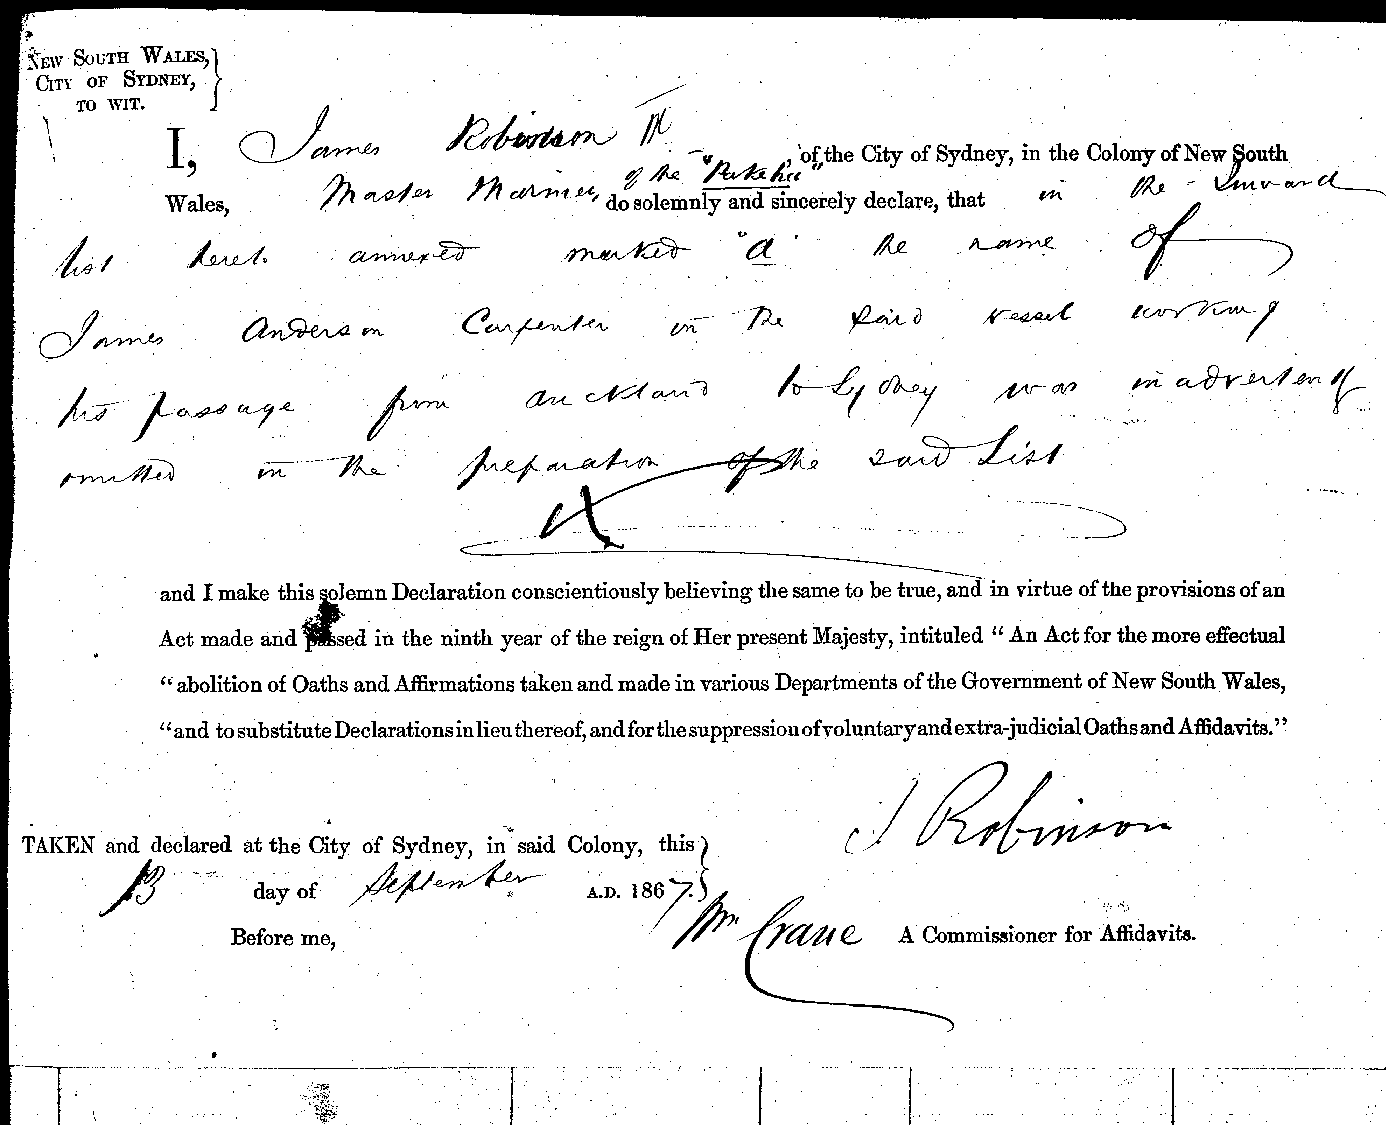 NEW SOUTH WALES,
CITY OF SYDNEY,
TO WIT.
I, James Robinson of the City of Sydney, in the Colony of New South
of the "Pakeha"
Wales, Master Mariner, do solemnly and sincerely declare, that in the Inward
list hereto annexed marked "a" the name of
James Anderson Carpenter in the said vessel working
his passage from Auckland to Sydney was inadvertently
omitted in the preparation of the said List
and I make this solemn Declaration conscientiously believing the same to be true, and in virtue of the provisions of an
Act made and passed in the ninth year of the reign of Her present Majesty, intituled "An Act for the more effectual
"abolition of Oaths and Affirmations taken and made in various Departments of the Government of New South Wales,
"and to substitute Declarations in lieu thereof, and for the suppression of voluntary and extra-judicial Oaths and Affidavits."
J Robinson
TAKEN and declared at the City of Sydney, in said Colony, this
13 day of September A.D. 1867.
Before me, Wm Crane A Commissioner for Affidavits.